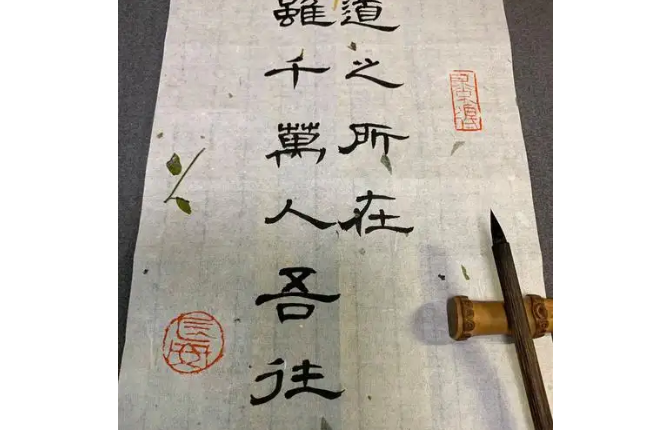 道之所在
雖千萬人吾往
長安